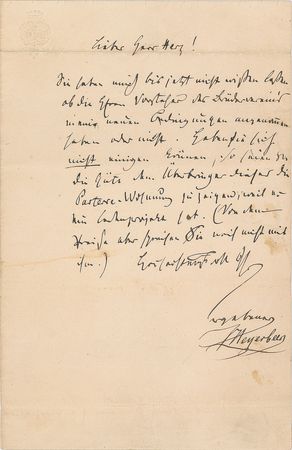 Lieber Herr Herz!
Sie haben mich bis jetzt nicht wissen lassen
ob die Herren Vorsteher des Bädervereins
meine neuen Bedingungen angenommen
haben oder nicht. Haben sie sich
nicht einigen können, so haben Sie
die Güte dem Überbringer dieses die
Parterre-Wohnung zu zeigen, weil er
ein Ladenprojekt hat. (Von dem
Preise aber sprechen Sie noch nicht mit
ihm.) Hochachtungsvoll Ihr
ergebener
Meyerbeer